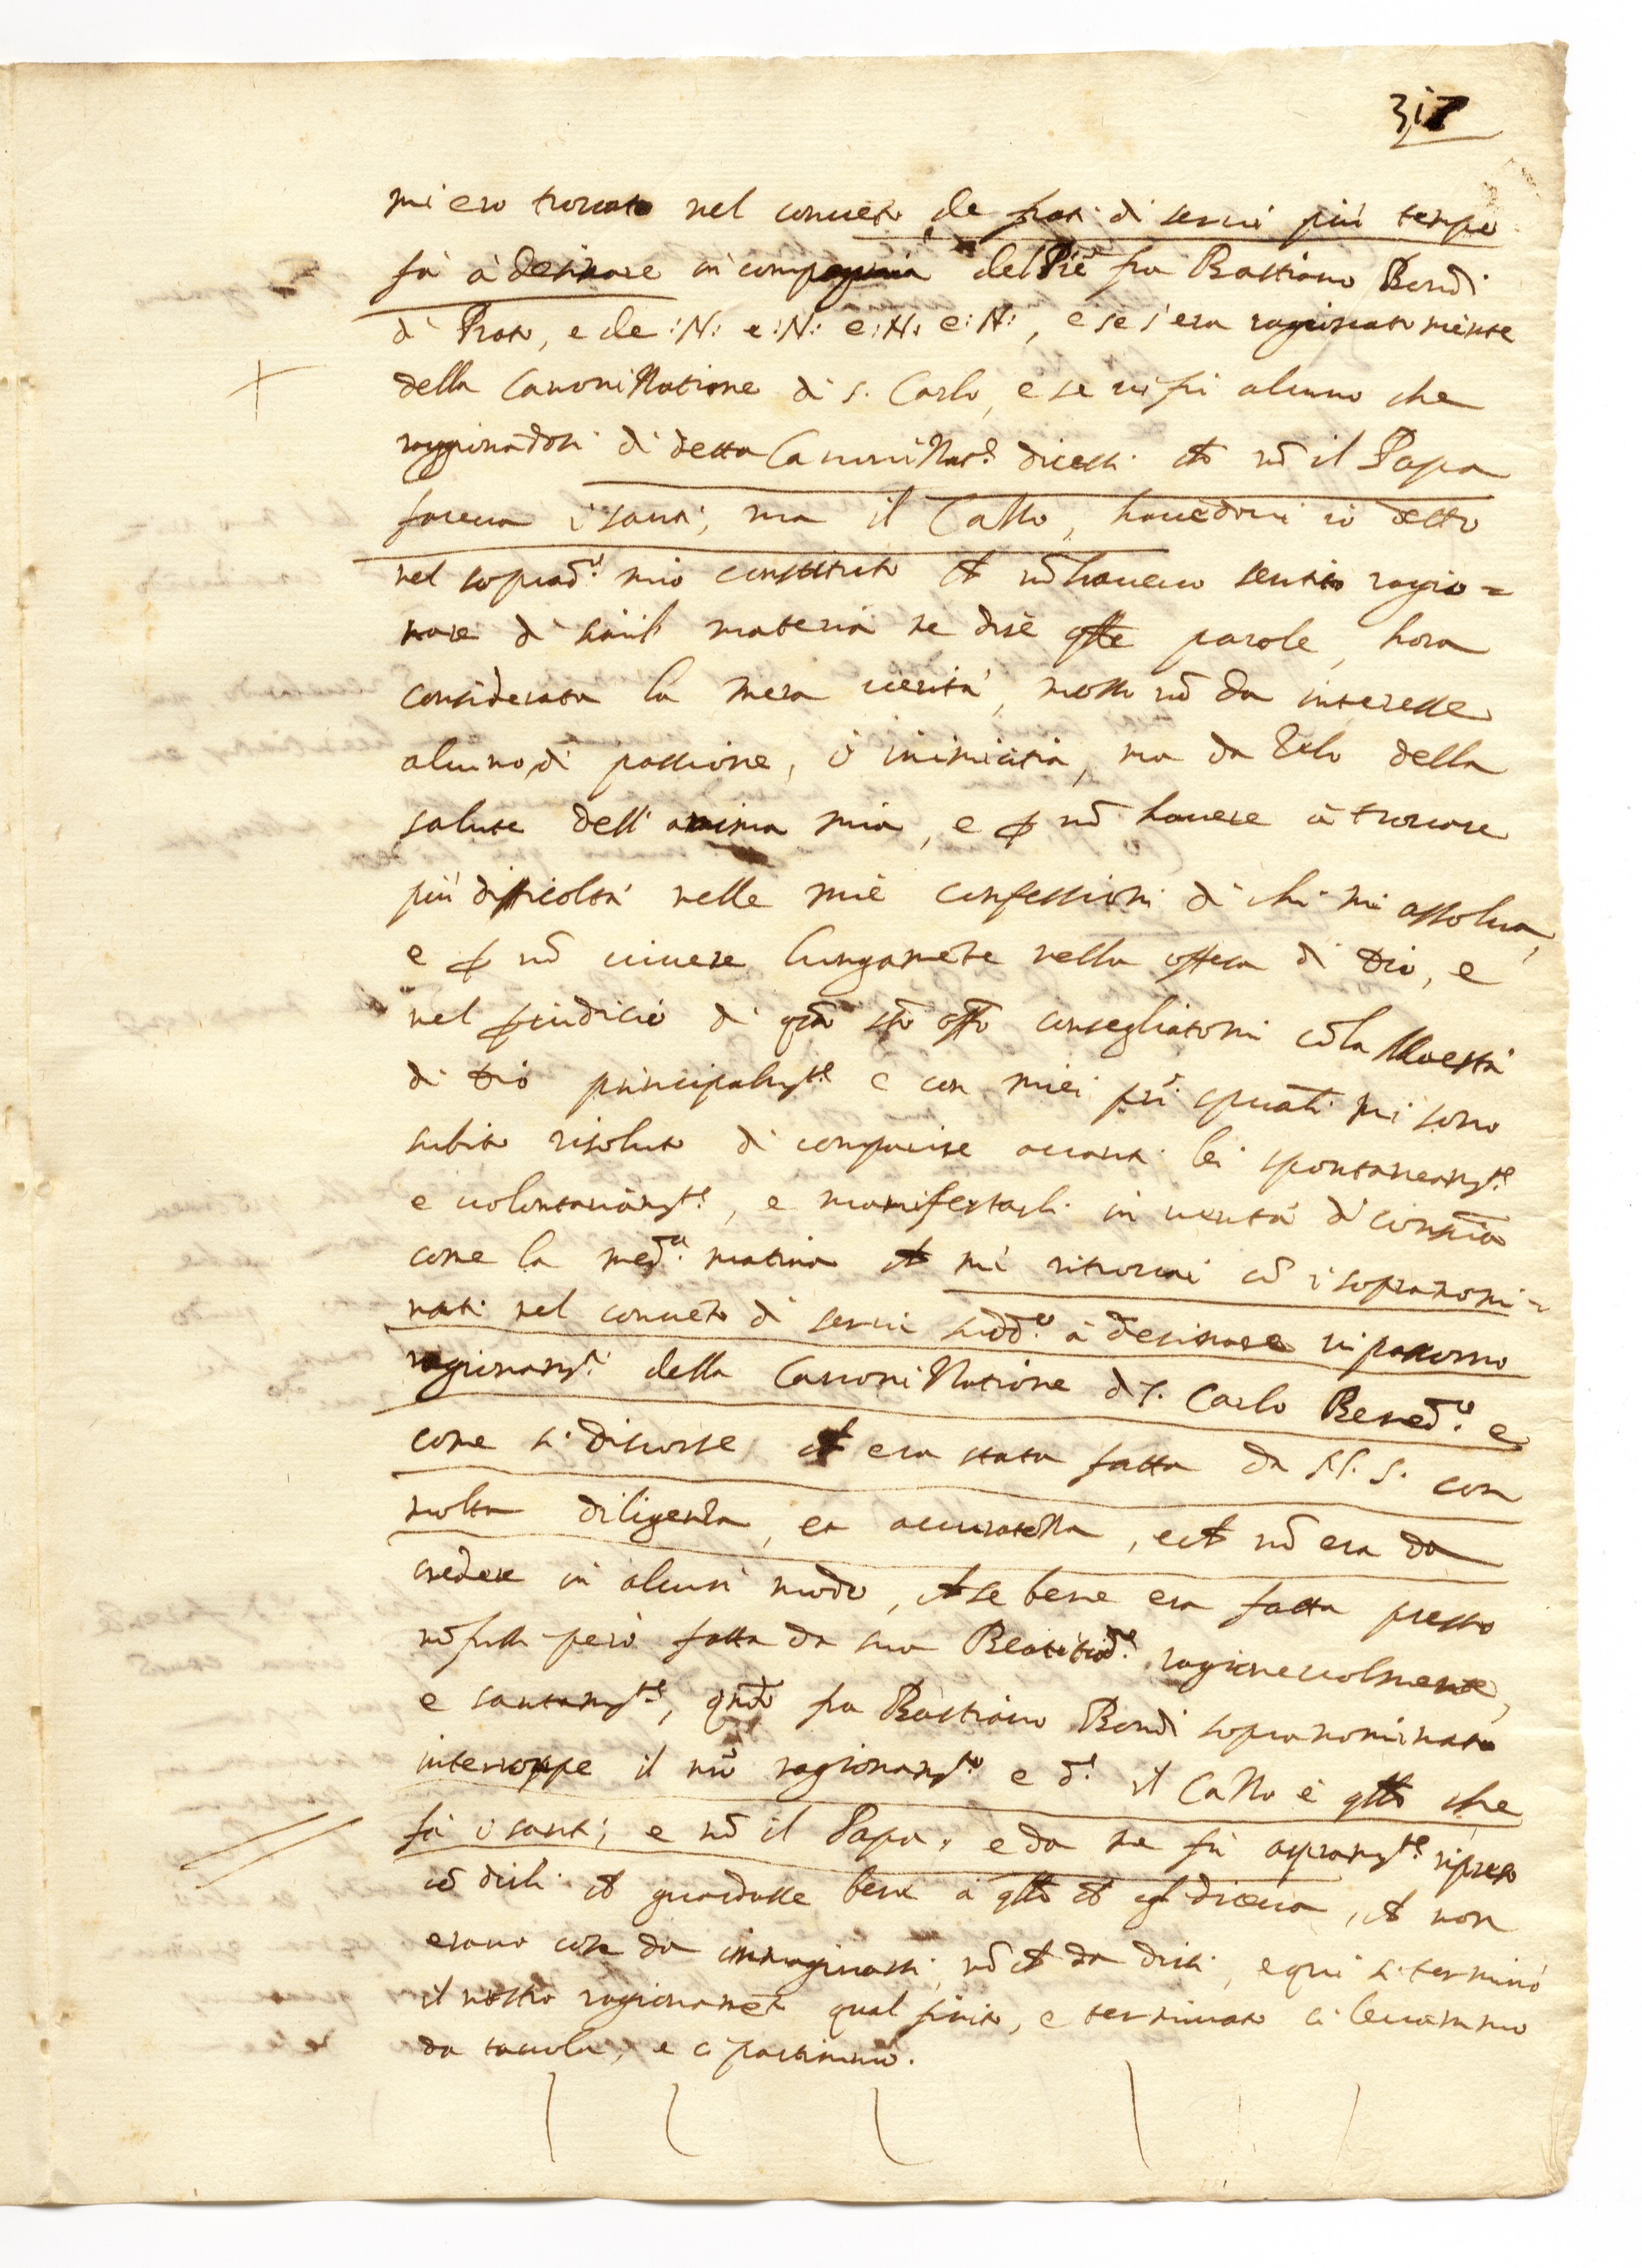 317
mi ero trovato nel conuẽto de frati di serui più tempo
fà à desinare in compagnia del Prẽ fra Bastiano Bondi
di Prato, e de :N: e :N: e :N: e :N:, e se s'era ragionato mentre
della Canonizzatione di s. Carlo, e se ui fù alcuno che
raggionãdosi di detta Canonizat.e dicessi ch nõ il Papa
faceua i santi, ma il Cazzo, hauẽdoui io detto
nel soprad.o mio constituto ch nõ haueuo sentito ragio=
nare di simil materia ne dire qste parole, hora
considerata la mera uerità, mosso nõ da interesse
alcuno, di passione, ò inimicitia, ma da Zelo della
salute dell'anima mia, e p nõ hauere à trouare
più difficoltà nelle mie confessioni di chi mi assolua,
e p nõ uiuere lungamẽte nella offesa di Dio, e
nel giudicio di qto sto offo consegliatomi cõ la Maestà
di Dio principalmte e con miei pri spuali mi sono
subito risoluto di comparire auanti lei spontaneamte
e uolontariamte, e manifestarli in uerità di conscia
come la med.a matina ch mi ritrouai cõ i sopranomi=
nati nel conuẽto di serui sudd.o à desinare ui passorno
ragionamti della Canonizzatione di s. Carlo Bened.o e
come si discorse ch era stata fatta da N. S. con
molta diligenza, et accuratezza, e ch nõ era da
credere in alcun modo, ch se bene era fatta presto
nõ fussi però fatta da sua Beatitud.e ragioneuolmente,
e santamte, qndo fra Bastiano Bondi sopranominato
interroppe il nro ragionamto e d.e il Cazzo è qllo che
fà i santi, e nõ il Papa, e da me fù aspramte ripreso
cõ dirli ch guardasse bene à qllo ch egl diceua, ch non
erano cose da immaginarsi, nõ ch da dirsi, e qui si terminò
il nostro ragionamẽto qual finito, e terminato ci leuammo
da tauola, e ci partimmo.